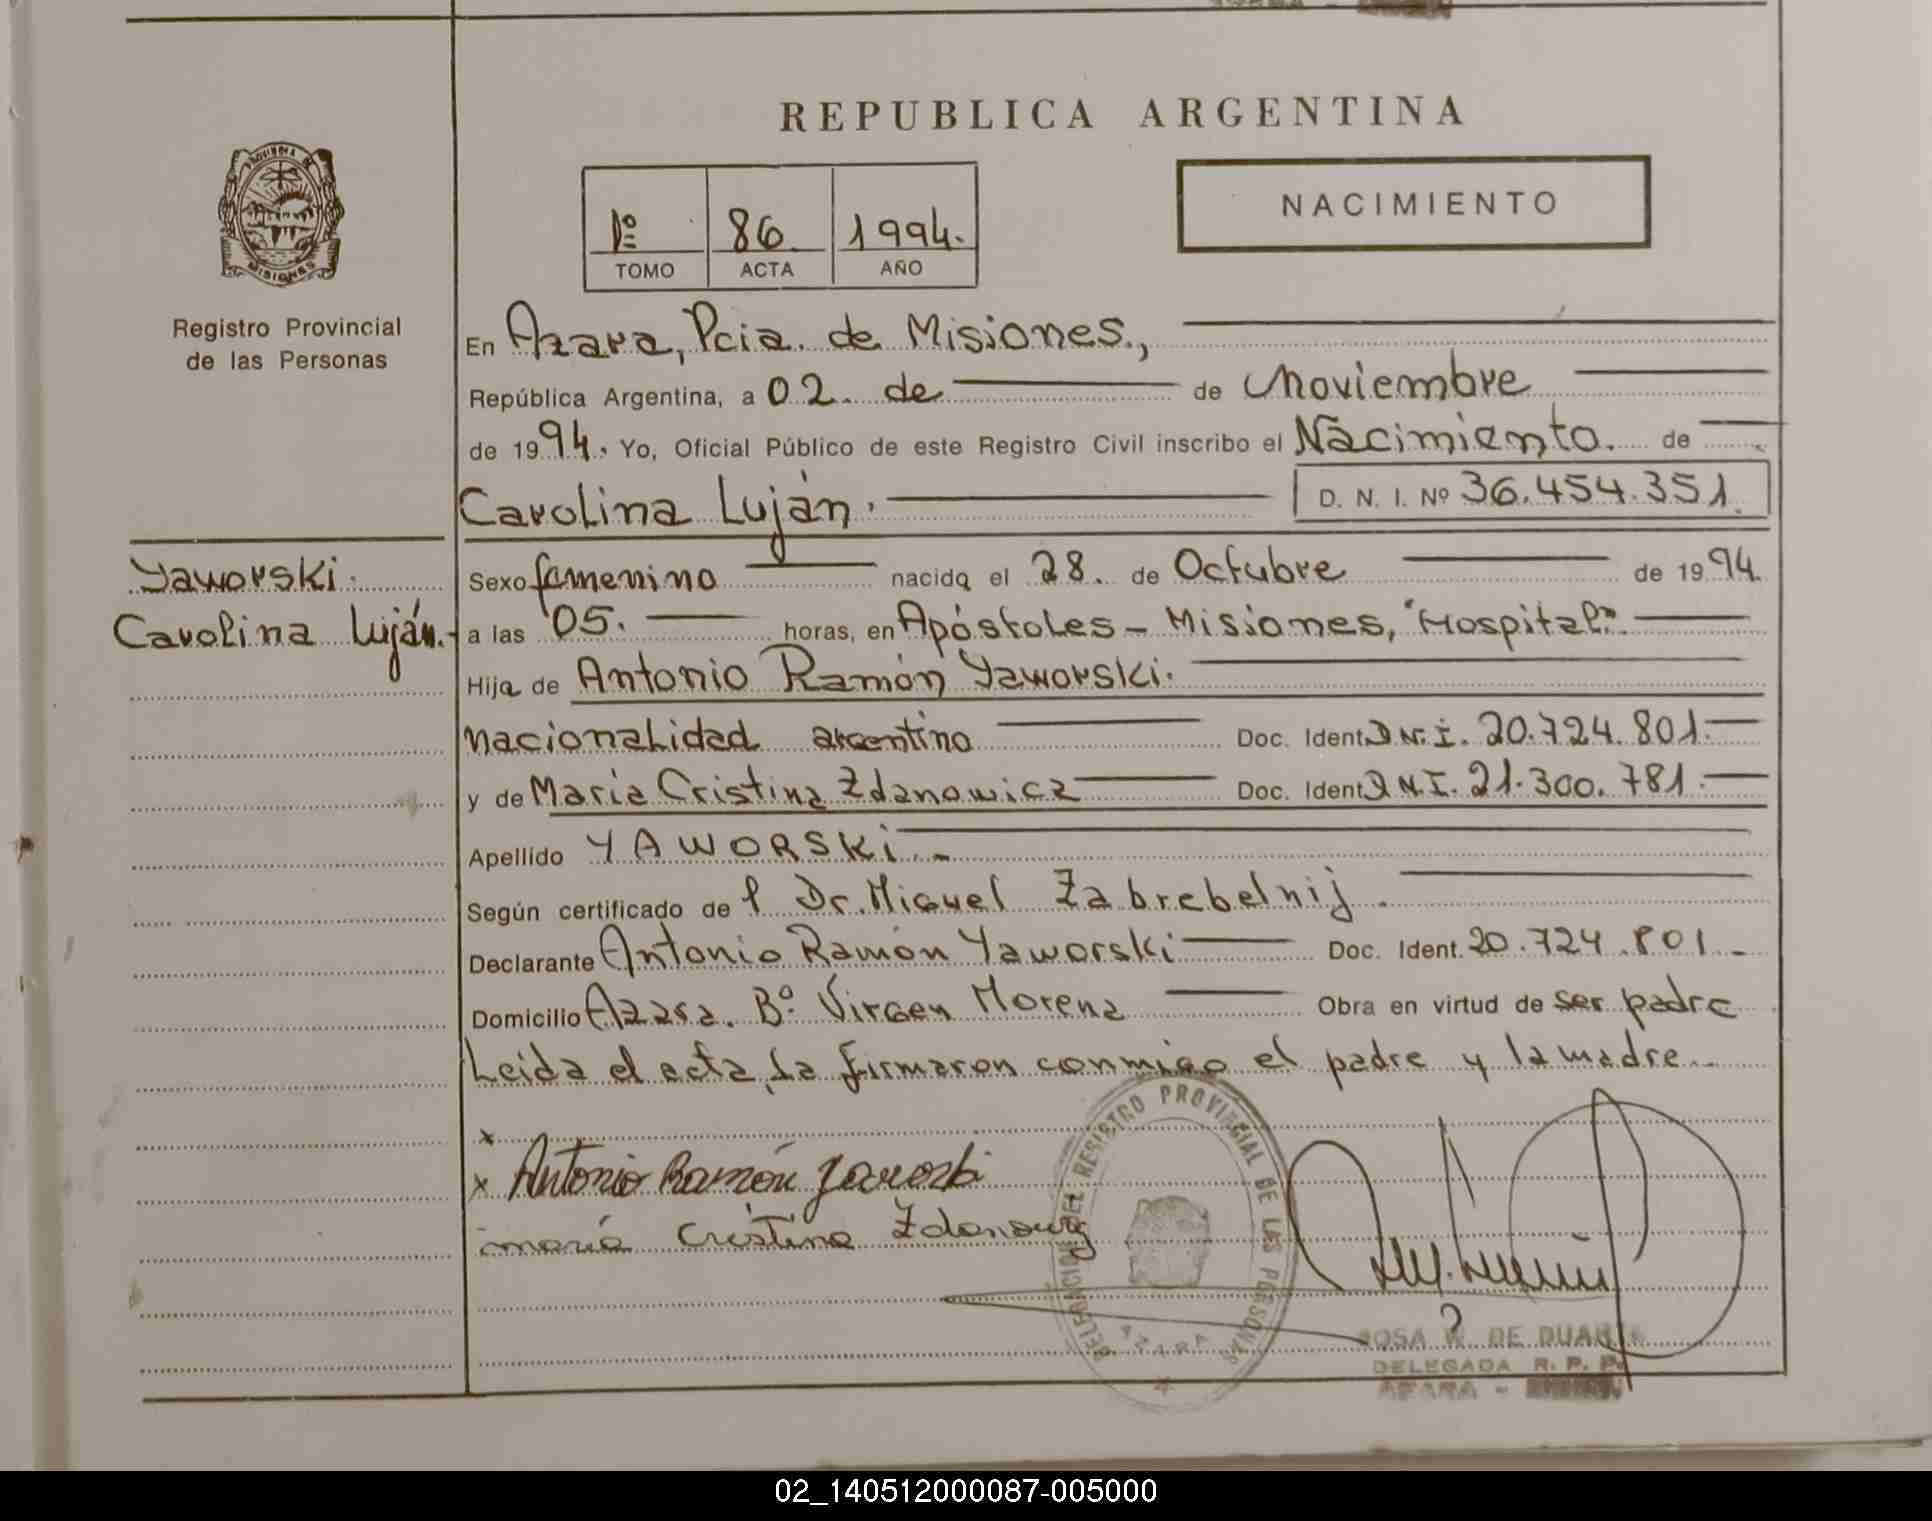 REPUBLICA ARGENTINA
PROVINCIA DE
MISIONES
Registro Provincial
de las Personas
1º 86 1994.
TOMO ACTA AÑO
NACIMIENTO
En Azara, Pcia. de Misiones.,
República Argentina, a 02. de de Noviembre
de 1994. Yo, Oficial Público de este Registro Civil inscribo el Nacimiento. de
Carolina Luján. D. N. I. Nº 36.454.351.
Yaworski.
Carolina Luján.-
Sexo femenino nacida el 28. de Octubre de 1994.
a las 05. horas, en Apóstoles - Misiones, "Hospital".
Hija de Antonio Ramón Yaworski.
nacionalidad argentino Doc. Ident. D.N.I. 20.724.801.
y de María Cristina Zdanowicz Doc. Ident. D.N.I. 21.300.781.
Apellido YAWORSKi.-
Según certificado de l Dr. Miguel Zabrebelnij.
Declarante Antonio Ramón Yaworski Doc. Ident. 20.724.801.-
Domicilio Azara. Bº Virgen Morena Obra en virtud de ser padre
Leida el acta, la firmaron conmigo el padre y la madre.-
x
x Antonio Ramón Yaworski
María Cristina Zdanowicz
DELEGACION DEL REGISTRO PROVINCIAL DE LAS PERSONAS
AZARA
ROSA W. DE DUARTE
DELEGADA R. P. P.
AZARA -
02_140512000087-005000